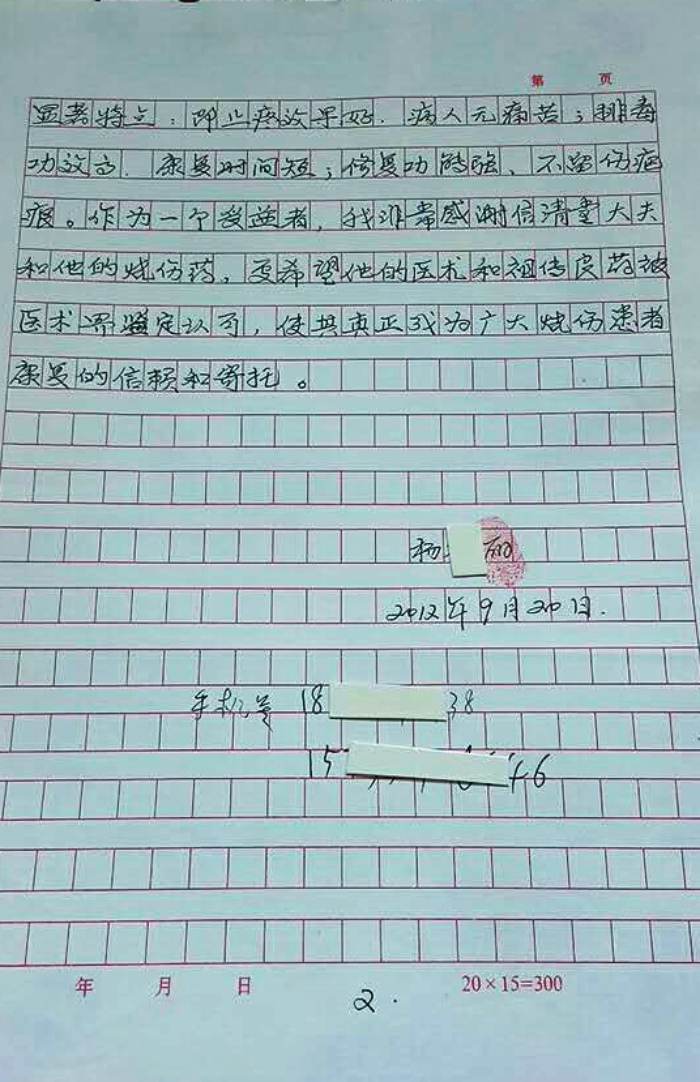 第 页
显著特点：即止疼效果好．病人无痛苦；排毒
功效高．康复时间短；修复功能强、不留伤疤
痕。作为一个受益者，我非常感谢信清堂大夫
和他的烧伤药，更希望他的医术和祖传良药被
医术界鉴定认可，使其真正成为广大烧伤患者
康复的信赖和寄托。
杨
2012年9月20日.
手机号 18 38
15 46
年 月 日 20×15=300
2.